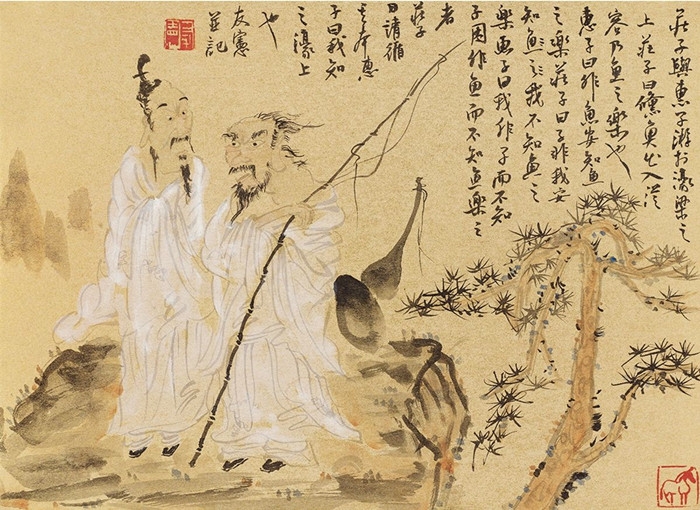 莊子與惠子游於濠梁之
上莊子曰儵魚出入從
容乃魚之樂也
惠子曰非魚安知魚
之樂莊子曰子非我安
知魚之我不知魚之
樂惠子曰我非子而不知
子固非魚而不知魚樂之
者
莊子
曰請循
其本惠
子曰我知
之濠上
也
友憲
並記